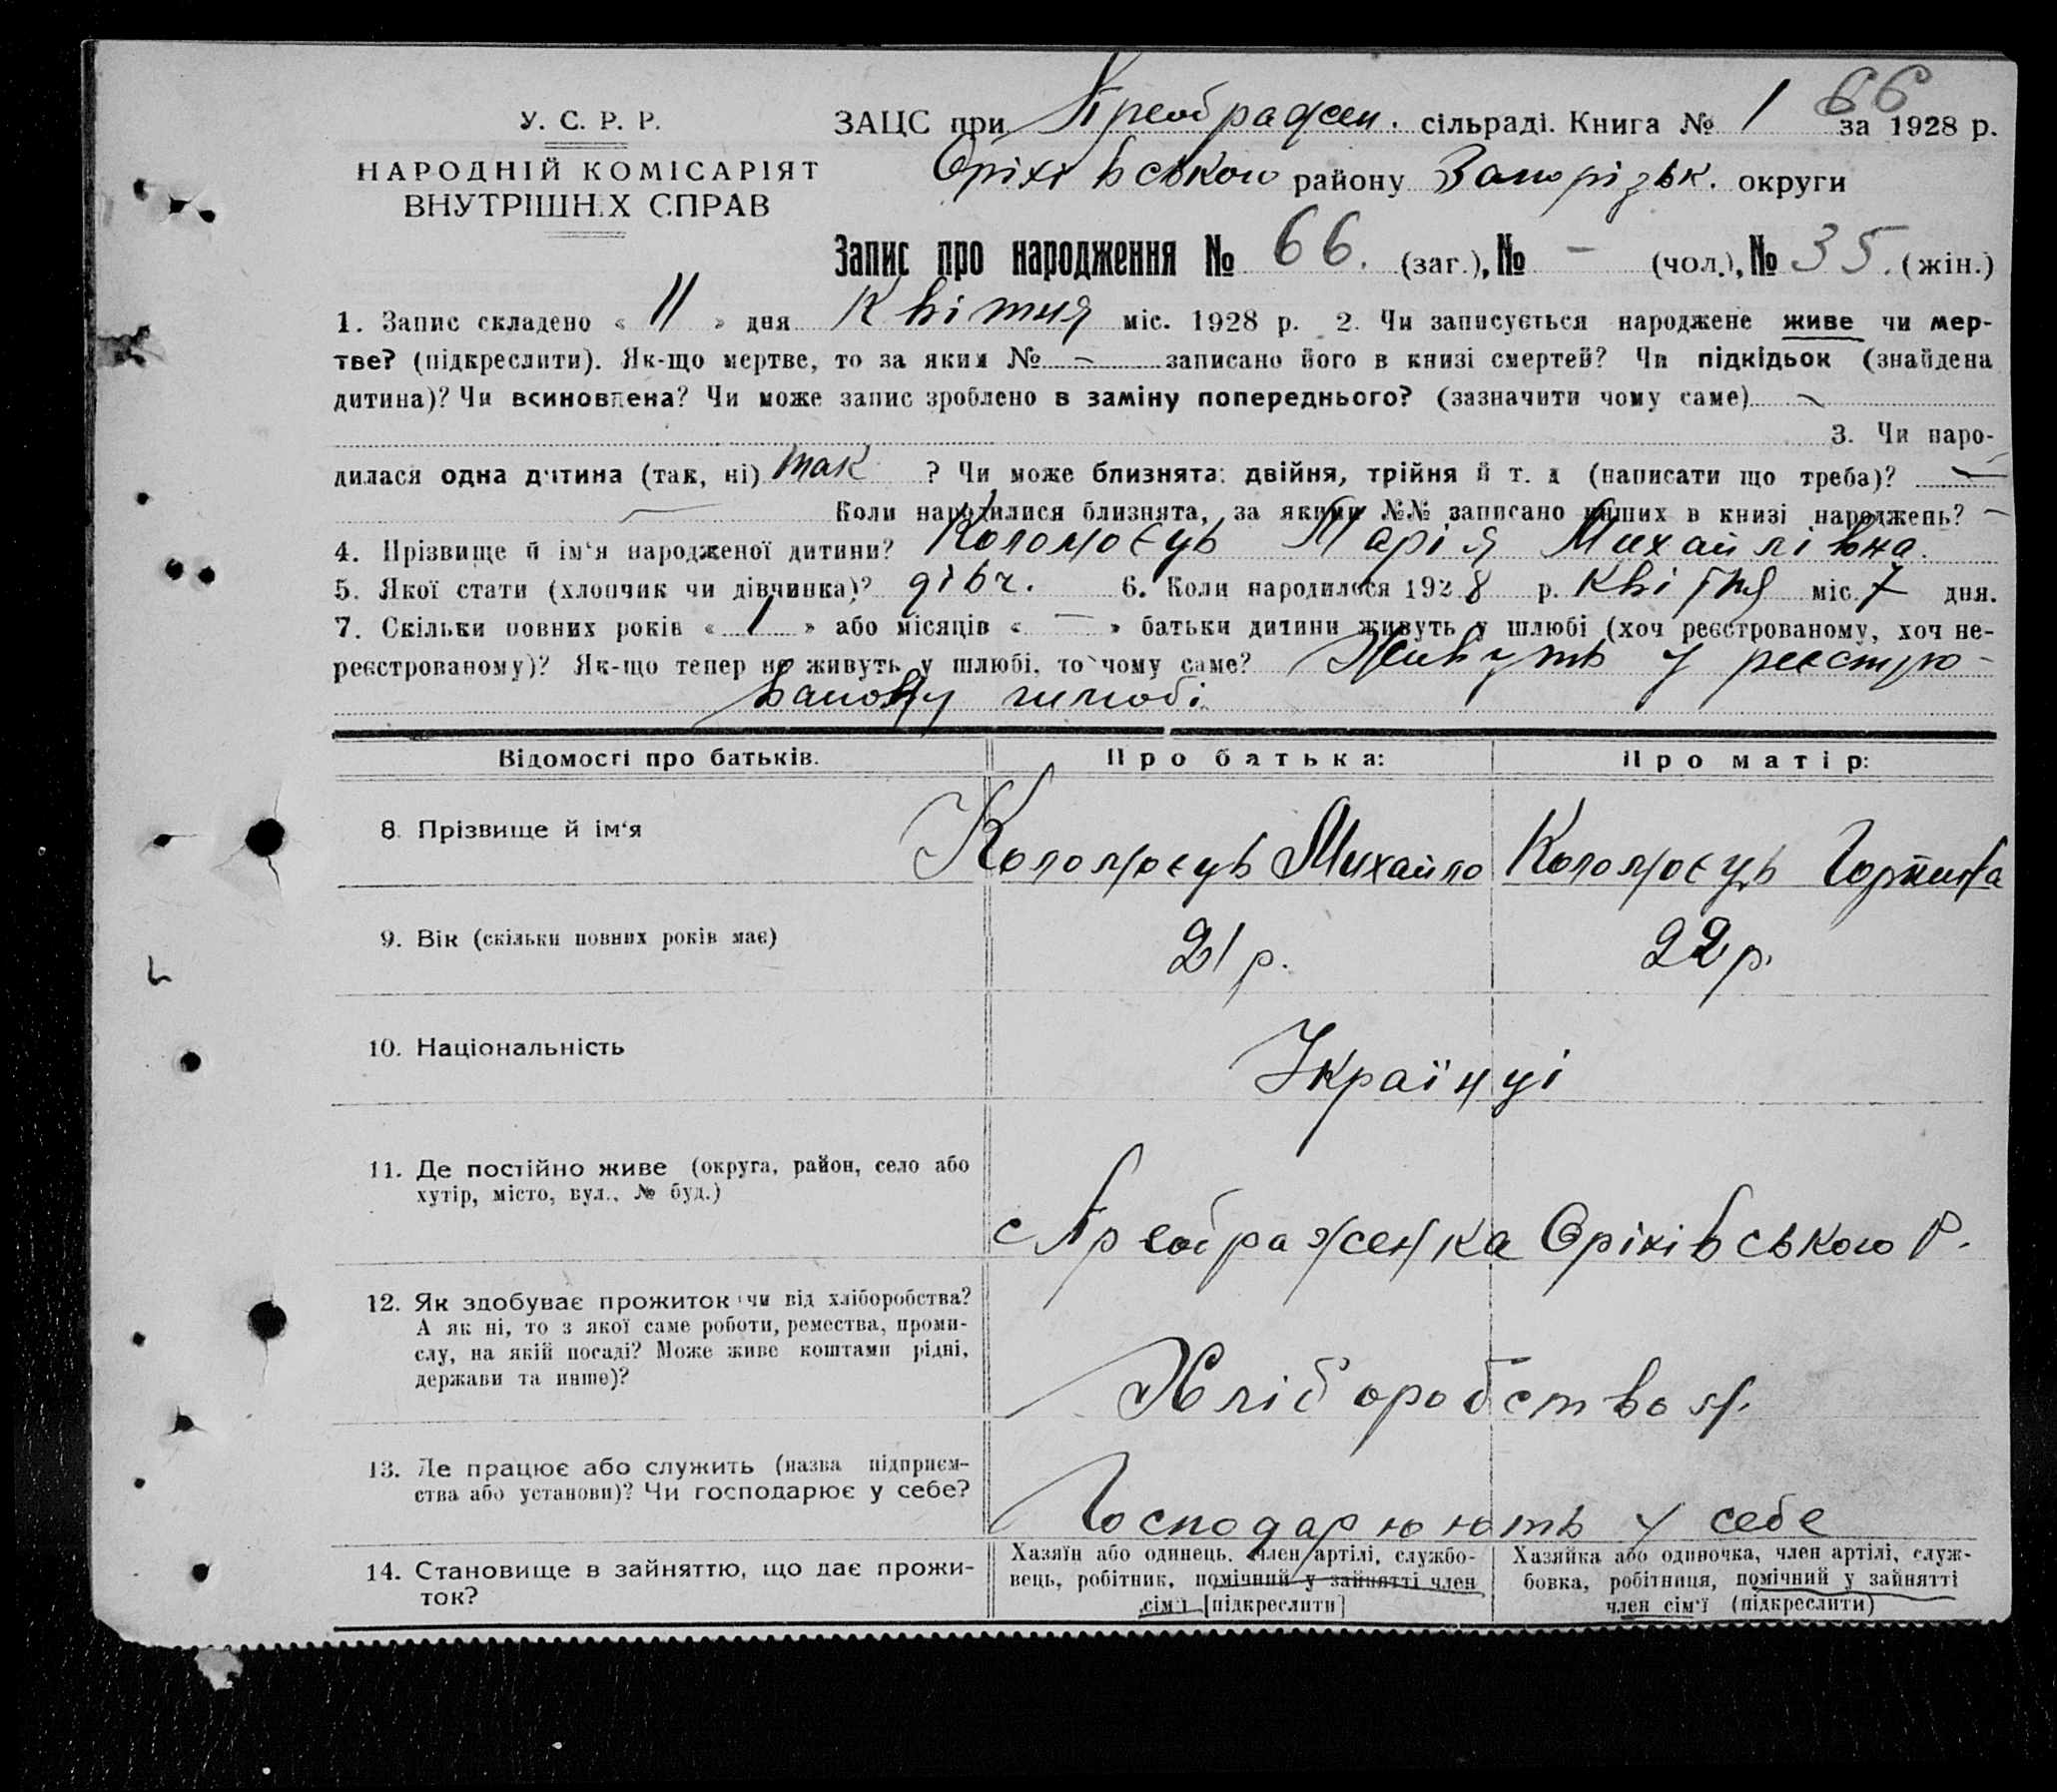 66
У. С. Р. Р.
НАРОДНІЙ КОМІСАРІЯТ
ВНУТРІШНІХ СПРАВ
ЗАЦС при Преображен. сільраді. Книга № 1 за 1928 р.
Оріхівського району Запорізьк. округи
Запис про народження № 66. (заг.), № – (чол.), № 35. (жін.)
1. Запис складено « 11 » дня Квітня міс. 1928 р. 2. Чи записується народжене живе чи мер-
тве? (підкреслити). Як-що мертве, то за яким № – записано його в книзі смертей? Чи підкідьок (знайдена
дитина)? Чи всиновлена? Чи може запис зроблено в заміну попереднього? (зазначити чому саме) –
3. Чи наро-
дилася одна дитина (так, ні) так ? Чи може близнята: двійня, трійня й т. д (написати що треба)? –
– Коли народилися близнята, за якими №№ записано инших в книзі народжень? –
4. Прізвище й ім'я народженої дитини? Коломоєць Марія Михайлівна.
5. Якої стати (хлопчик чи дівчинка)? дівч. 6. Коли народилося 1928 р. Квітня міс. 7 дня.
7. Скільки повних років « 1 » або місяців « – » батьки дитини живуть у шлюбі (хоч реєстрованому, хоч не-
реєстрованому)? Як-що тепер не живуть у шлюбі, то чому саме? Живуть у реєстро-
ваному шлюбі.
Відомості про батьків. Про батька: Про матір:
8. Прізвище й ім'я Коломоєць Михайло Коломоєць Горпина
9. Вік (скільки повних років має) 21 р. 22 р.
10. Національність Українці
11. Де постійно живе (округа, район, село або
хутір, місто, вул., № буд.)
с Преображенка Оріхівського Р.
12. Як здобуває прожиток (чи від хліборобства?
А як ні, то з якої саме роботи, ремества, проми-
слу, на якій посаді? Може живе коштами рідні,
держави та инше)?
Хліборобством.
13. Де працює або служить (назва підприєм-
ства або установи)? Чи господарює у себе?
Господарюють у себе
14. Становище в зайняттю, що дає прожи-
ток?
Хазяїн або одинець, член артілі, службо-
вець, робітник, помічний у зайнятті член
сім'ї [підкреслити]
Хазяйка або одиночка, член артілі, служ-
бовка, робітниця, помічний у зайнятті
член сім'ї (підкреслити)